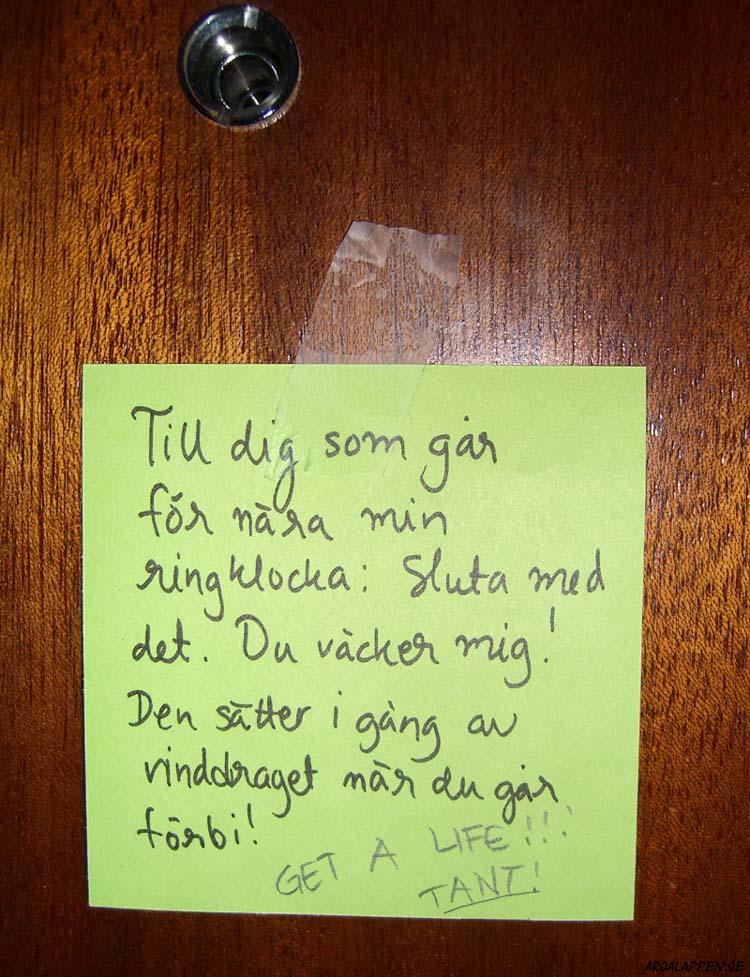 Till dig som går
för nära min
ringklocka: Sluta med
det. Du väcker mig!
Den sätter i gång av
vinddraget när du går
förbi!
GET A LIFE!!!
TANT!
ARGALAPPEN.SE